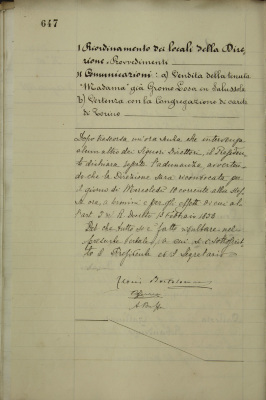 647
1) Riordinamento dei locali della Dire-
zione, Provvedimenti
2) Comunicazioni: a) Vendita della tenuta
"Madama" già Gromo Losa in Salussola
b) Vertenza con la Congregazione di carità
di Torino
Dopo trascorsa un'ora senza che intervenga
alcun altro dei Signori Direttori, il Presiden-
te dichiara sciolta l'adunanza, avverten-
do che la Direzione sarà riconvocata per
il giorno di Mercoledì 10 corrente alla stessa
ora, a termini e per gli effetti di cui al-
l'art. R. Decreto 5 Febbraio 1891
Del che tutto si è fatto risultare nel
presente verbale, a cui si è sottoscrit-
to il Presidente ed il Segretario